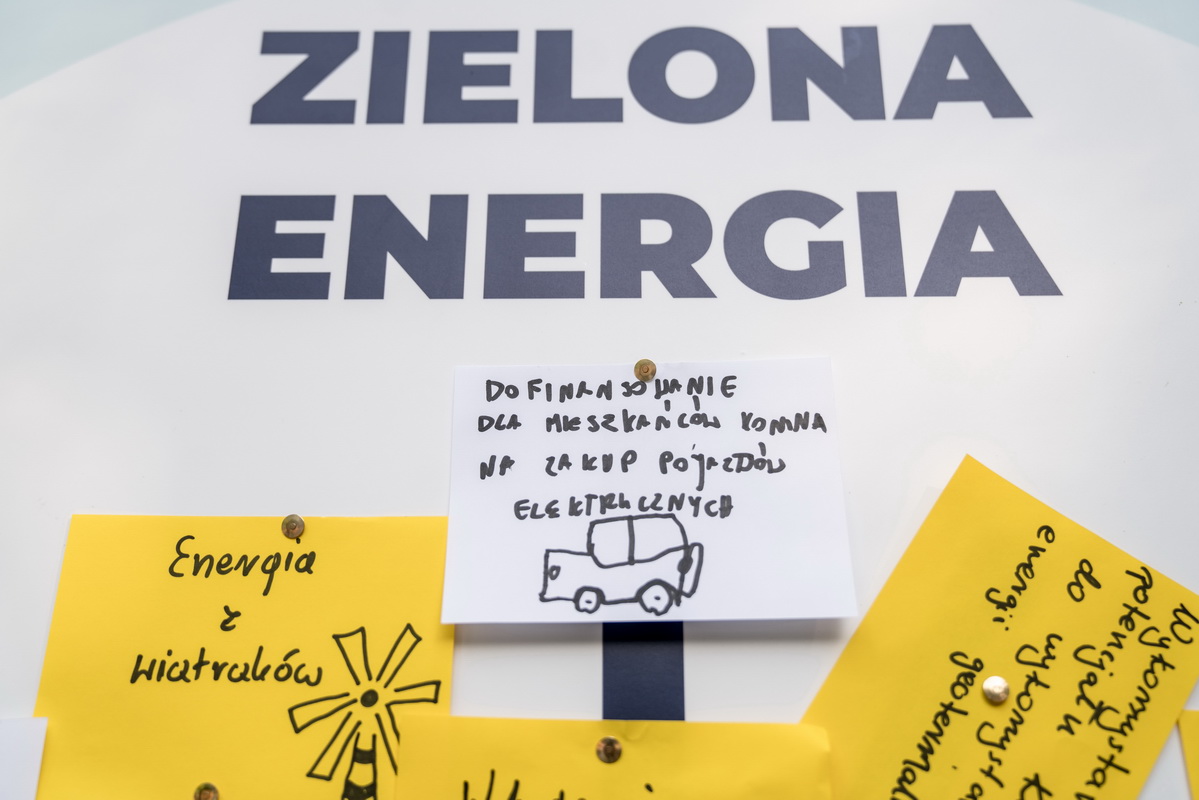 ZIELONA
ENERGIA
DOFINANSOWANIE
DLA MIESZKAŃCÓW KONINA
NA ZAKUP POJAZDÓW
ELEKTRYCZNYCH
Energia
z
wiatraków
Wykorzysta
potencjału
do wykorzysta
energii geotermal